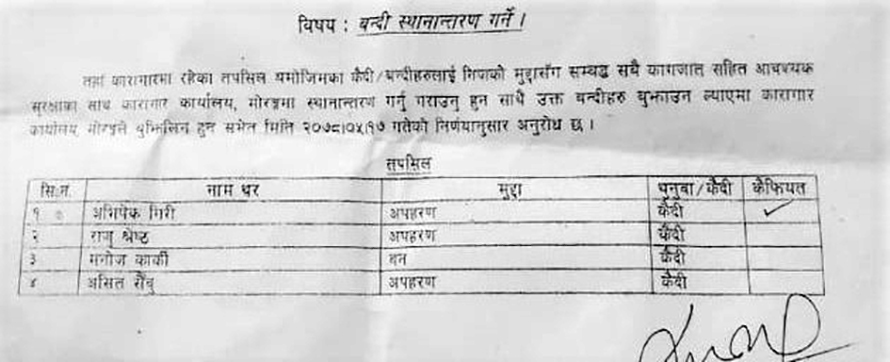 विषय : बन्दी स्थानान्तरण गर्ने ।
तहाँ कारागारमा रहेका तपसिल बमोजिमका कैदी/बन्दीहरुलाई निजको मुद्दासँग सम्बद्ध सबै कागजात सहित आवश्यक
सुरक्षाका साथ कारागार कार्यालय, मोरङमा स्थानान्तरण गर्नु गराउनु हुन साथै उक्त बन्दीहरु बुझाउन ल्याएमा कारागार
कार्यालय मोरङले बुझिलिन हुन समेत मिति २०७८।०५।१७ गतेको निर्णयानुसार अनुरोध छ ।
तपसिल
सि.न. नाम थर मुद्दा थुनुवा/कैदी कैफियत
१ अभिषेक गिरी अपहरण कैदी ✓
२ राजु श्रेष्ठ अपहरण कैदी
३ मनोज कार्की वन कैदी
४ असित राई अपहरण कैदी